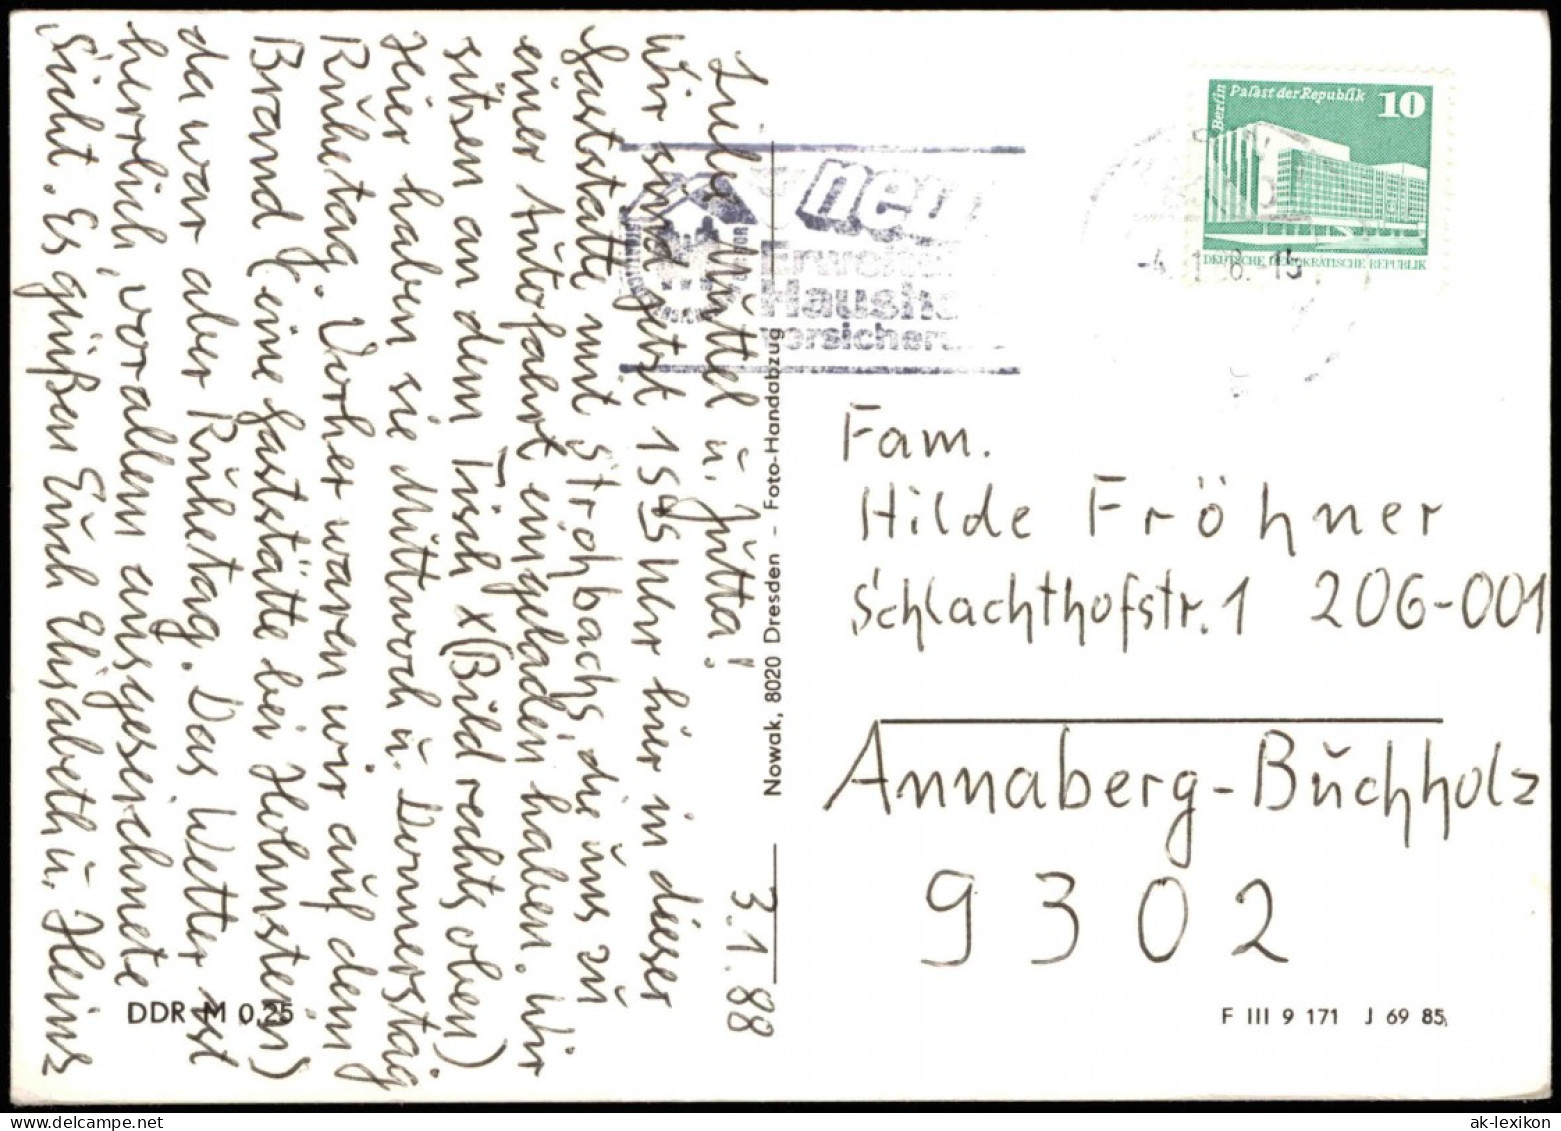 3.1.88
Liebe Muttel u. Jutta!
Wir sind jetzt 1545 Uhr hier in dieser
Gaststätte mit Strohbachs, die uns zu
einer Autofahrt eingeladen haben. Wir
sitzen an dem Tisch x (Bild rechts oben)
Hier haben sie Mittwoch u. Donnerstag
Ruhetag. Vorher waren wir auf dem
Brand (eine Gaststätte bei Hohnstein)
da war aber Ruhetag. Das Wetter ist
herrlich, vor allem ausgezeichnete
Sicht. Es grüßen Euch Elisabeth u. Heinz
DDR M 0,25
Nowak, 8020 Dresden - Foto-Handabzug
neu
Haush
versicher
-4. 1. 8 -15
Berlin
Palast der Republik
10
DEUTSCHE DEMOKRATISCHE REPUBLIK
Fam.
Hilde Fröhner
Schlachthofstr. 1 206-001
Annaberg-Buchholz
9302
F III 9 171 J 69 85
ak-lexikon